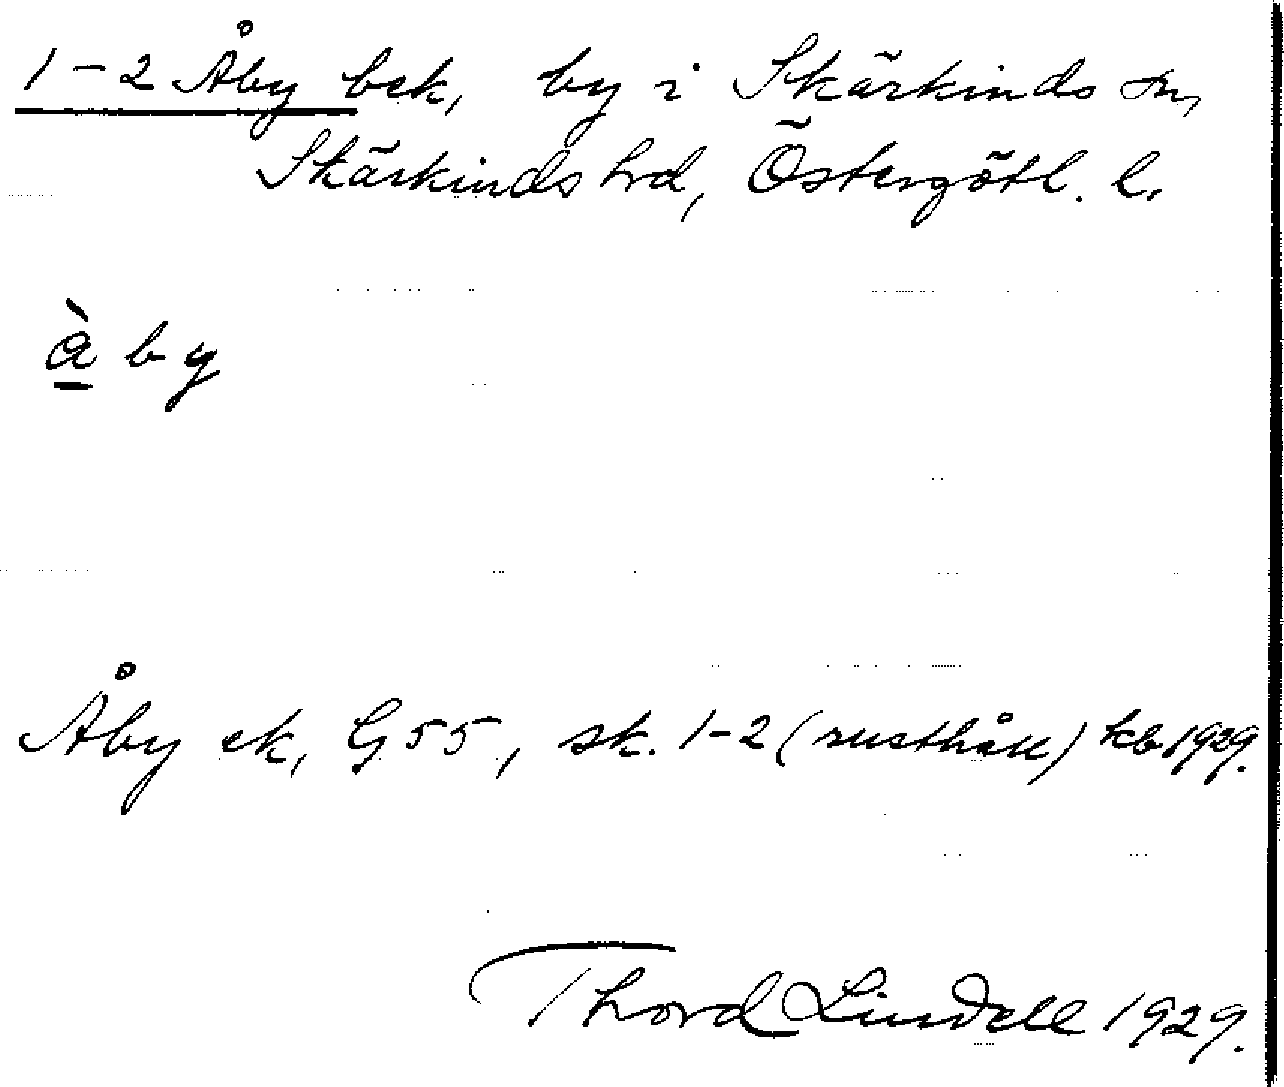 1-2 Åby bek, by i Skärkinds sn,
Skärkinds hd, Östergötl. l.
à̱ b y
Åby ek, G 55, sk. 1-2 (rusthåll) kb 1929.
Thord Lindell 1929.